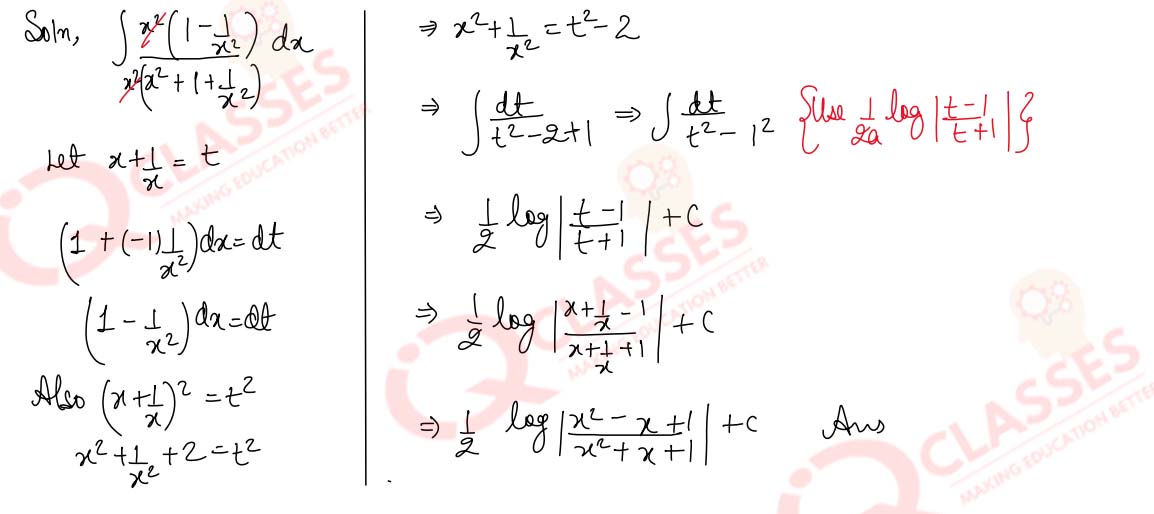 Soln, ∫ x²(1 - 1/x²) / x²(x² + 1 + 1/x²) dx
Let x + 1/x = t
(1 + (-1) 1/x²) dx = dt
(1 - 1/x²) dx = dt
Also (x + 1/x)² = t²
x² + 1/x² + 2 = t²
⇒ x² + 1/x² = t² - 2
⇒ ∫ dt / t² - 2 + 1 ⇒ ∫ dt / t² - 1² {Use 1/2a log |t - 1 / t + 1|}
⇒ 1/2 log |t - 1 / t + 1| + C
⇒ 1/2 log |x + 1/x - 1 / x + 1/x + 1| + C
⇒ 1/2 log |x² - x + 1 / x² + x + 1| + C Ans
IQ CLASSES
MAKING EDUCATION BETTER
IQ CLASSES
MAKING EDUCATION BETTER
IQ CLASSES
MAKING EDUCATION BETTER